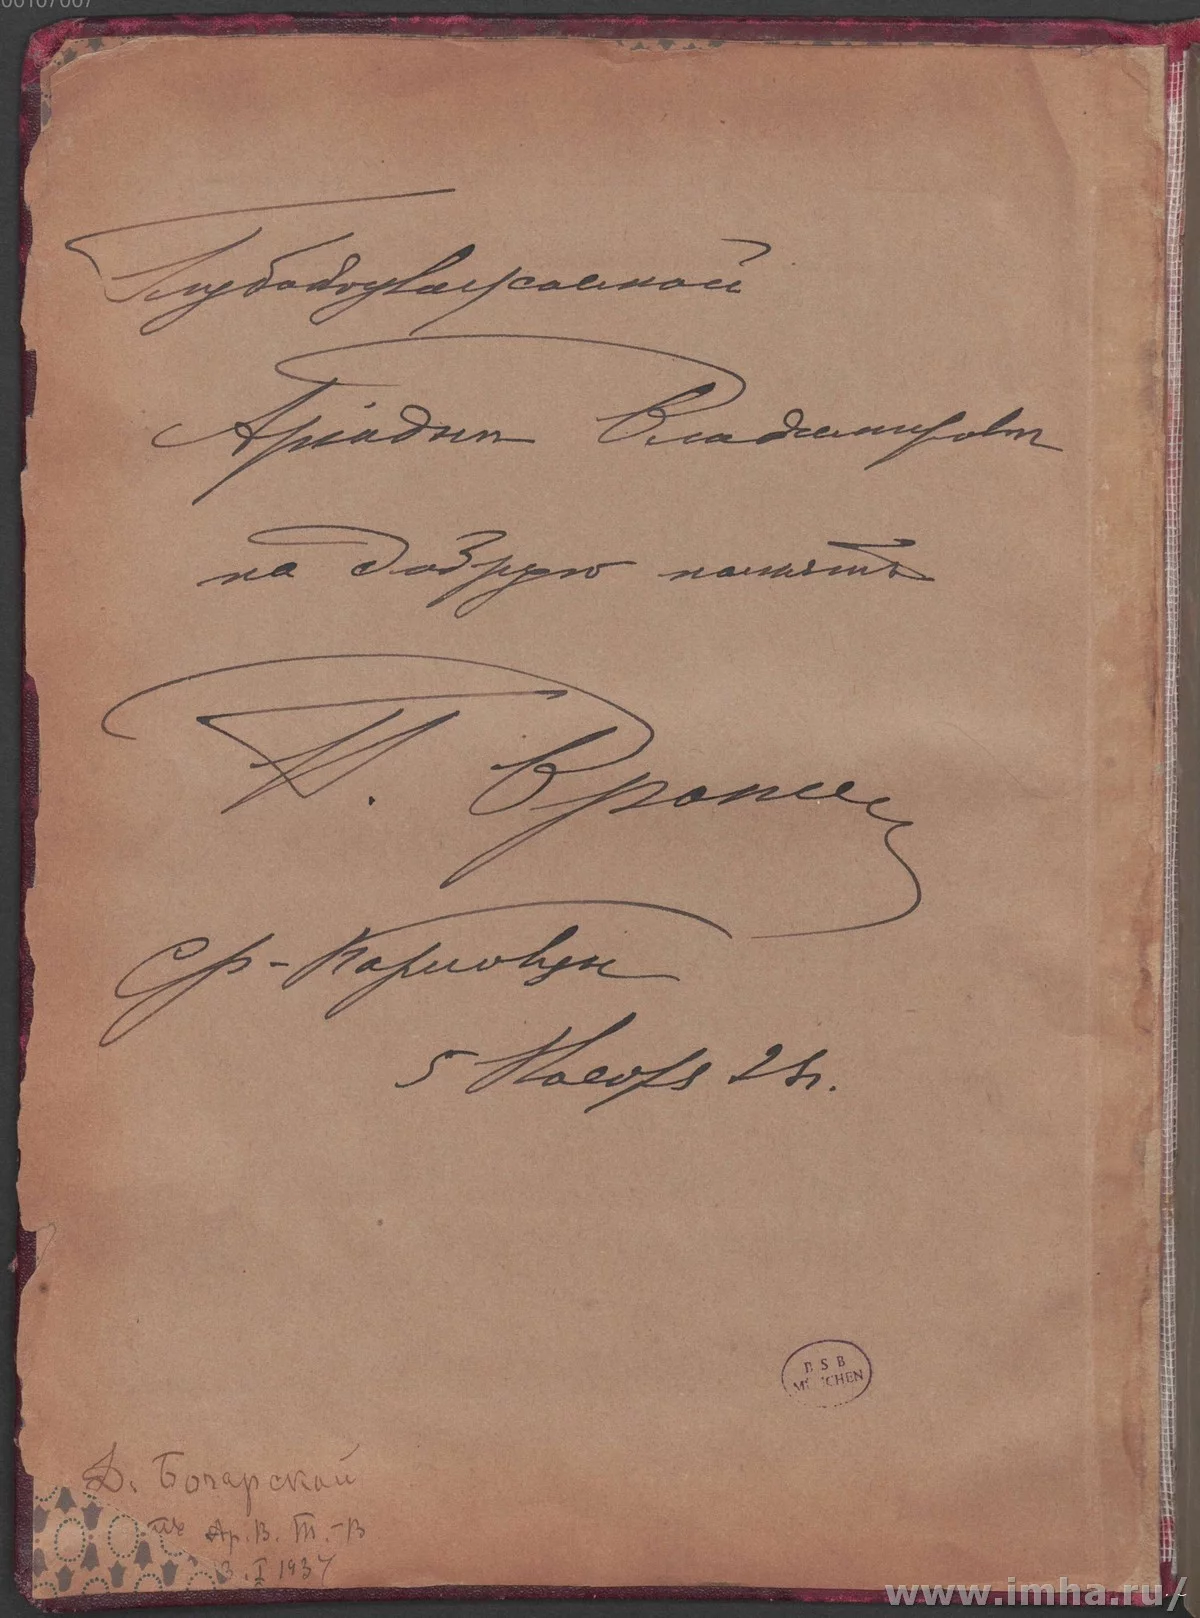 00167067
Глубокоуважаемой
Ариадне Владимировне
на добрую память
П. Врангель
Ср-Карловцы
5 Нояб 23г.
BSB
MÜNCHEN
Д. Бочарской
Ар. В. Т.-В
3. I 1937
www.imha.ru/